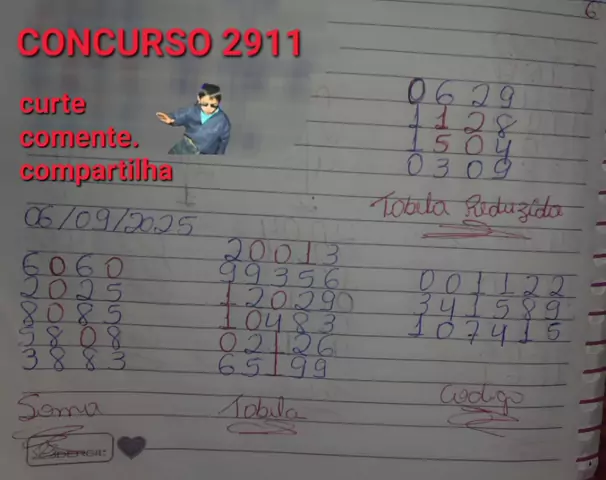 6
CONCURSO 2911
curte
comente.
compartilha
0629
1128
1504
0309
Tabila Reduzida
06/09/2025
6060
2025
8085
5808
3883
Soma
20013
99356
120290
10483
02126
65199
Tabila
001122
341589
107415
Codigo